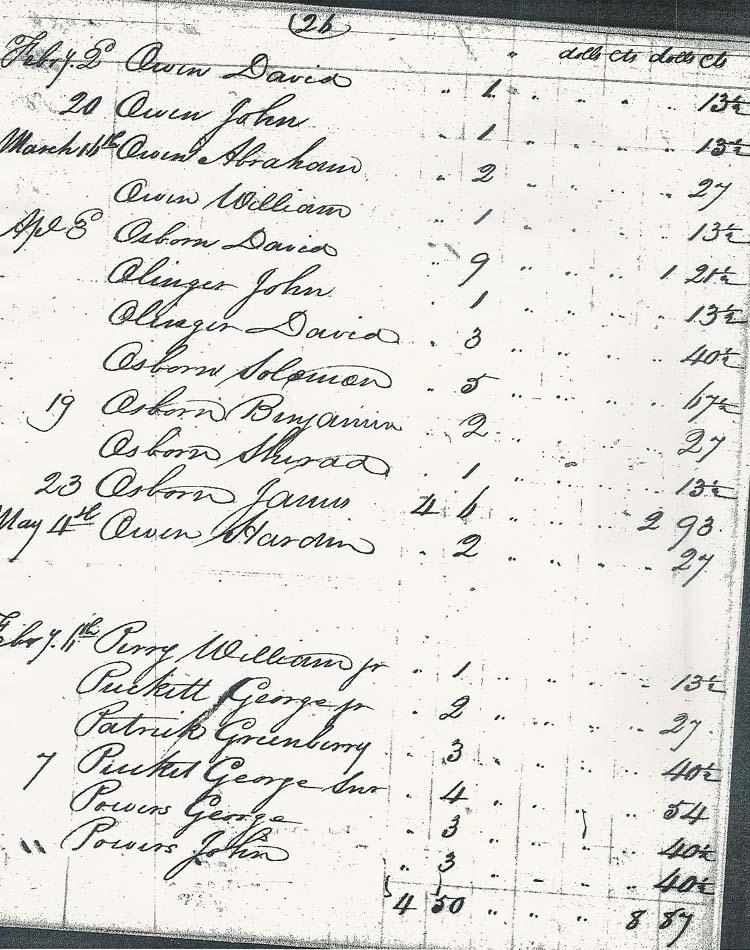 26
dolls cts dolls cts
Feby. 8 Owen David " 1 " " " " 13½
20 Owen John " 1 " " " " 13½
March 16th Owen Abraham " 2 " " " " 27
Owen William " 1 " " " " 13½
Apl 8 Osborn David " 9 " " " 1 21½
Olinger John " 1 " " " " 13½
Olinger David " 3 " " " " 40½
Osborn Solomon " 5 " " " " 67½
19 Osborn Benjamin " 2 " " " " 27
Osborn Sherad " 1 " " " " 13½
23 Osborn James 4 6 " " " 2 93
May 4th Owen Hardin " 2 " " " " 27
Feby. 6th Perry William jr " 1 " " " " 13½
Puckett George jr " 2 " " " " 27
Patrick Greenberry " 3 " " " " 40½
7 Pucket George Snr " 4 " " " " 54
Powers George " 3 " " " " 40½
" Powers John " 3 " " " " 40½
4 50 " " " 8 87